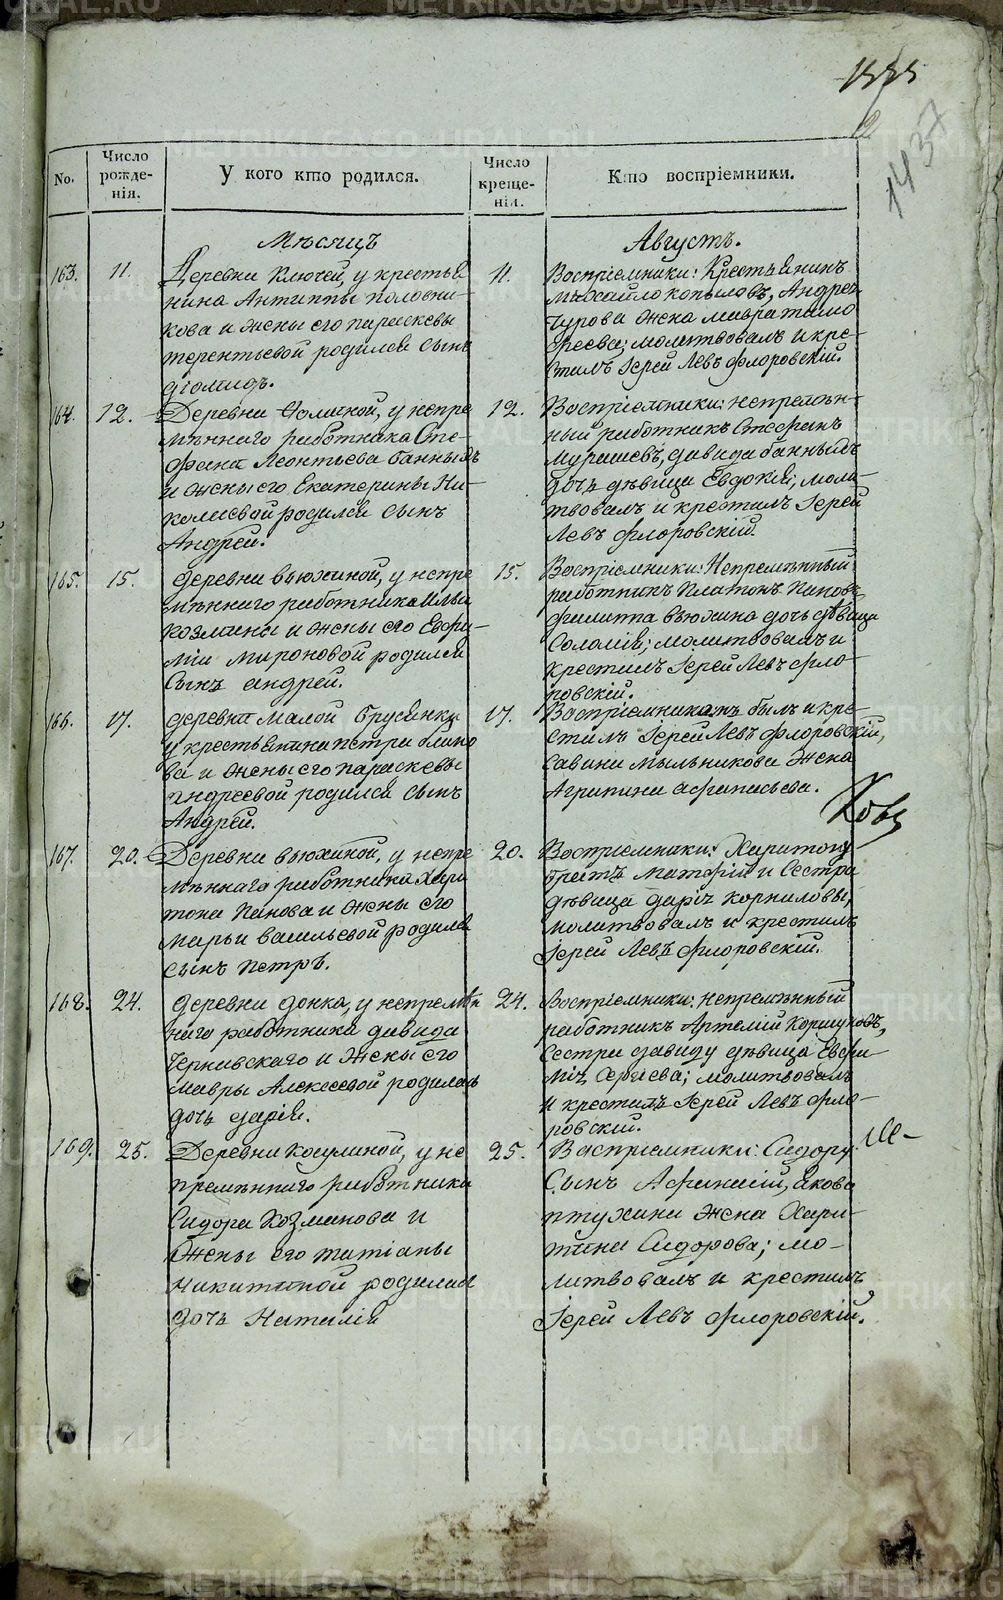 1535
1437
No.
Число
рожде-
нія.
У кого кто родился.
Число
креще-
нія.
Кто воспріемники.
Мѣсяцъ
Августъ.
163.
11.
Деревни Ключей, у крестья
нина Антиппы половни-
кова и жены его параскевы
терентьевой родился сынъ
діомидъ.
11.
Воспріемники: Крестьянинъ
михайло копыловъ, Андрея
чурова жена мавра тимо
феева; молитвовалъ и кре-
стилъ Іерей Левъ флоровскій.
164.
12.
Деревни у непре
мѣннаго работника Сте-
фана Леонтьева банныхъ
и жены его Екатерины Ни-
колаевой родился сынъ
Андрей.
12.
Воспріемники: непремѣн-
ный работникъ Стефанъ
Мурашевъ, давида банныхъ
дочь дѣвица Евдокія; моли-
твовалъ и крестилъ Іерей
Левъ флоровскій.
165.
15.
деревни вьюхиной, у непре
мѣннаго работника Ильи
козмина и жены его Евфи-
міи мироновой родился
сынъ андрей.
15.
Воспріемники: Непремѣнный
работникъ Платонъ Пановъ
филиппа вьюхина дочь дѣвица
Соломія; молитвовалъ и
крестилъ Іерей Левъ фло-
ровскій.
166.
17.
деревни малой брусянки
у крестьянина петра блино
ва и жены его параскевы
андреевой родился сынъ
Андрей.
17.
Воспріемникомъ былъ и кре-
стилъ Іерей Левъ флоровскій,
савина мыльникова жена
Агрипина афанасьева.
167.
20.
Деревни вьюхиной, у непре
мѣннаго работника Хари
тона Панова и жены его
марьи васильевой родился
сынъ петръ.
20.
Воспріемники: Харитону
братъ Матфій и Сестра
дѣвица дарія корниловы,
молитвовалъ и крестилъ
Іерей Левъ флоровскій.
168.
24.
деревни донка, у непремѣн
наго работника давида
Чернивскаго и жены его
мавры Алексеевой родилась
дочь дарія.
24.
Воспріемники: непремѣнный
работникъ Артемій Коршуновъ,
сестра давиду дѣвица Евфи-
мія Сергіева; молитвовалъ
и крестилъ Іерей Левъ фло-
ровскій.
169.
25.
Деревни косулиной, у не
премѣннаго работника
Сидора Козманова и
жены его татіаны
никитиной родилась
дочь Наталія
25.
Воспріемники: Сидору
Сынъ Афанасій, Якова
птухина жена Хари-
тина Сидорова; мо-
литвовалъ и крестилъ
Іерей Левъ флоровскій.
METRIKI.GASO-URAL.RU